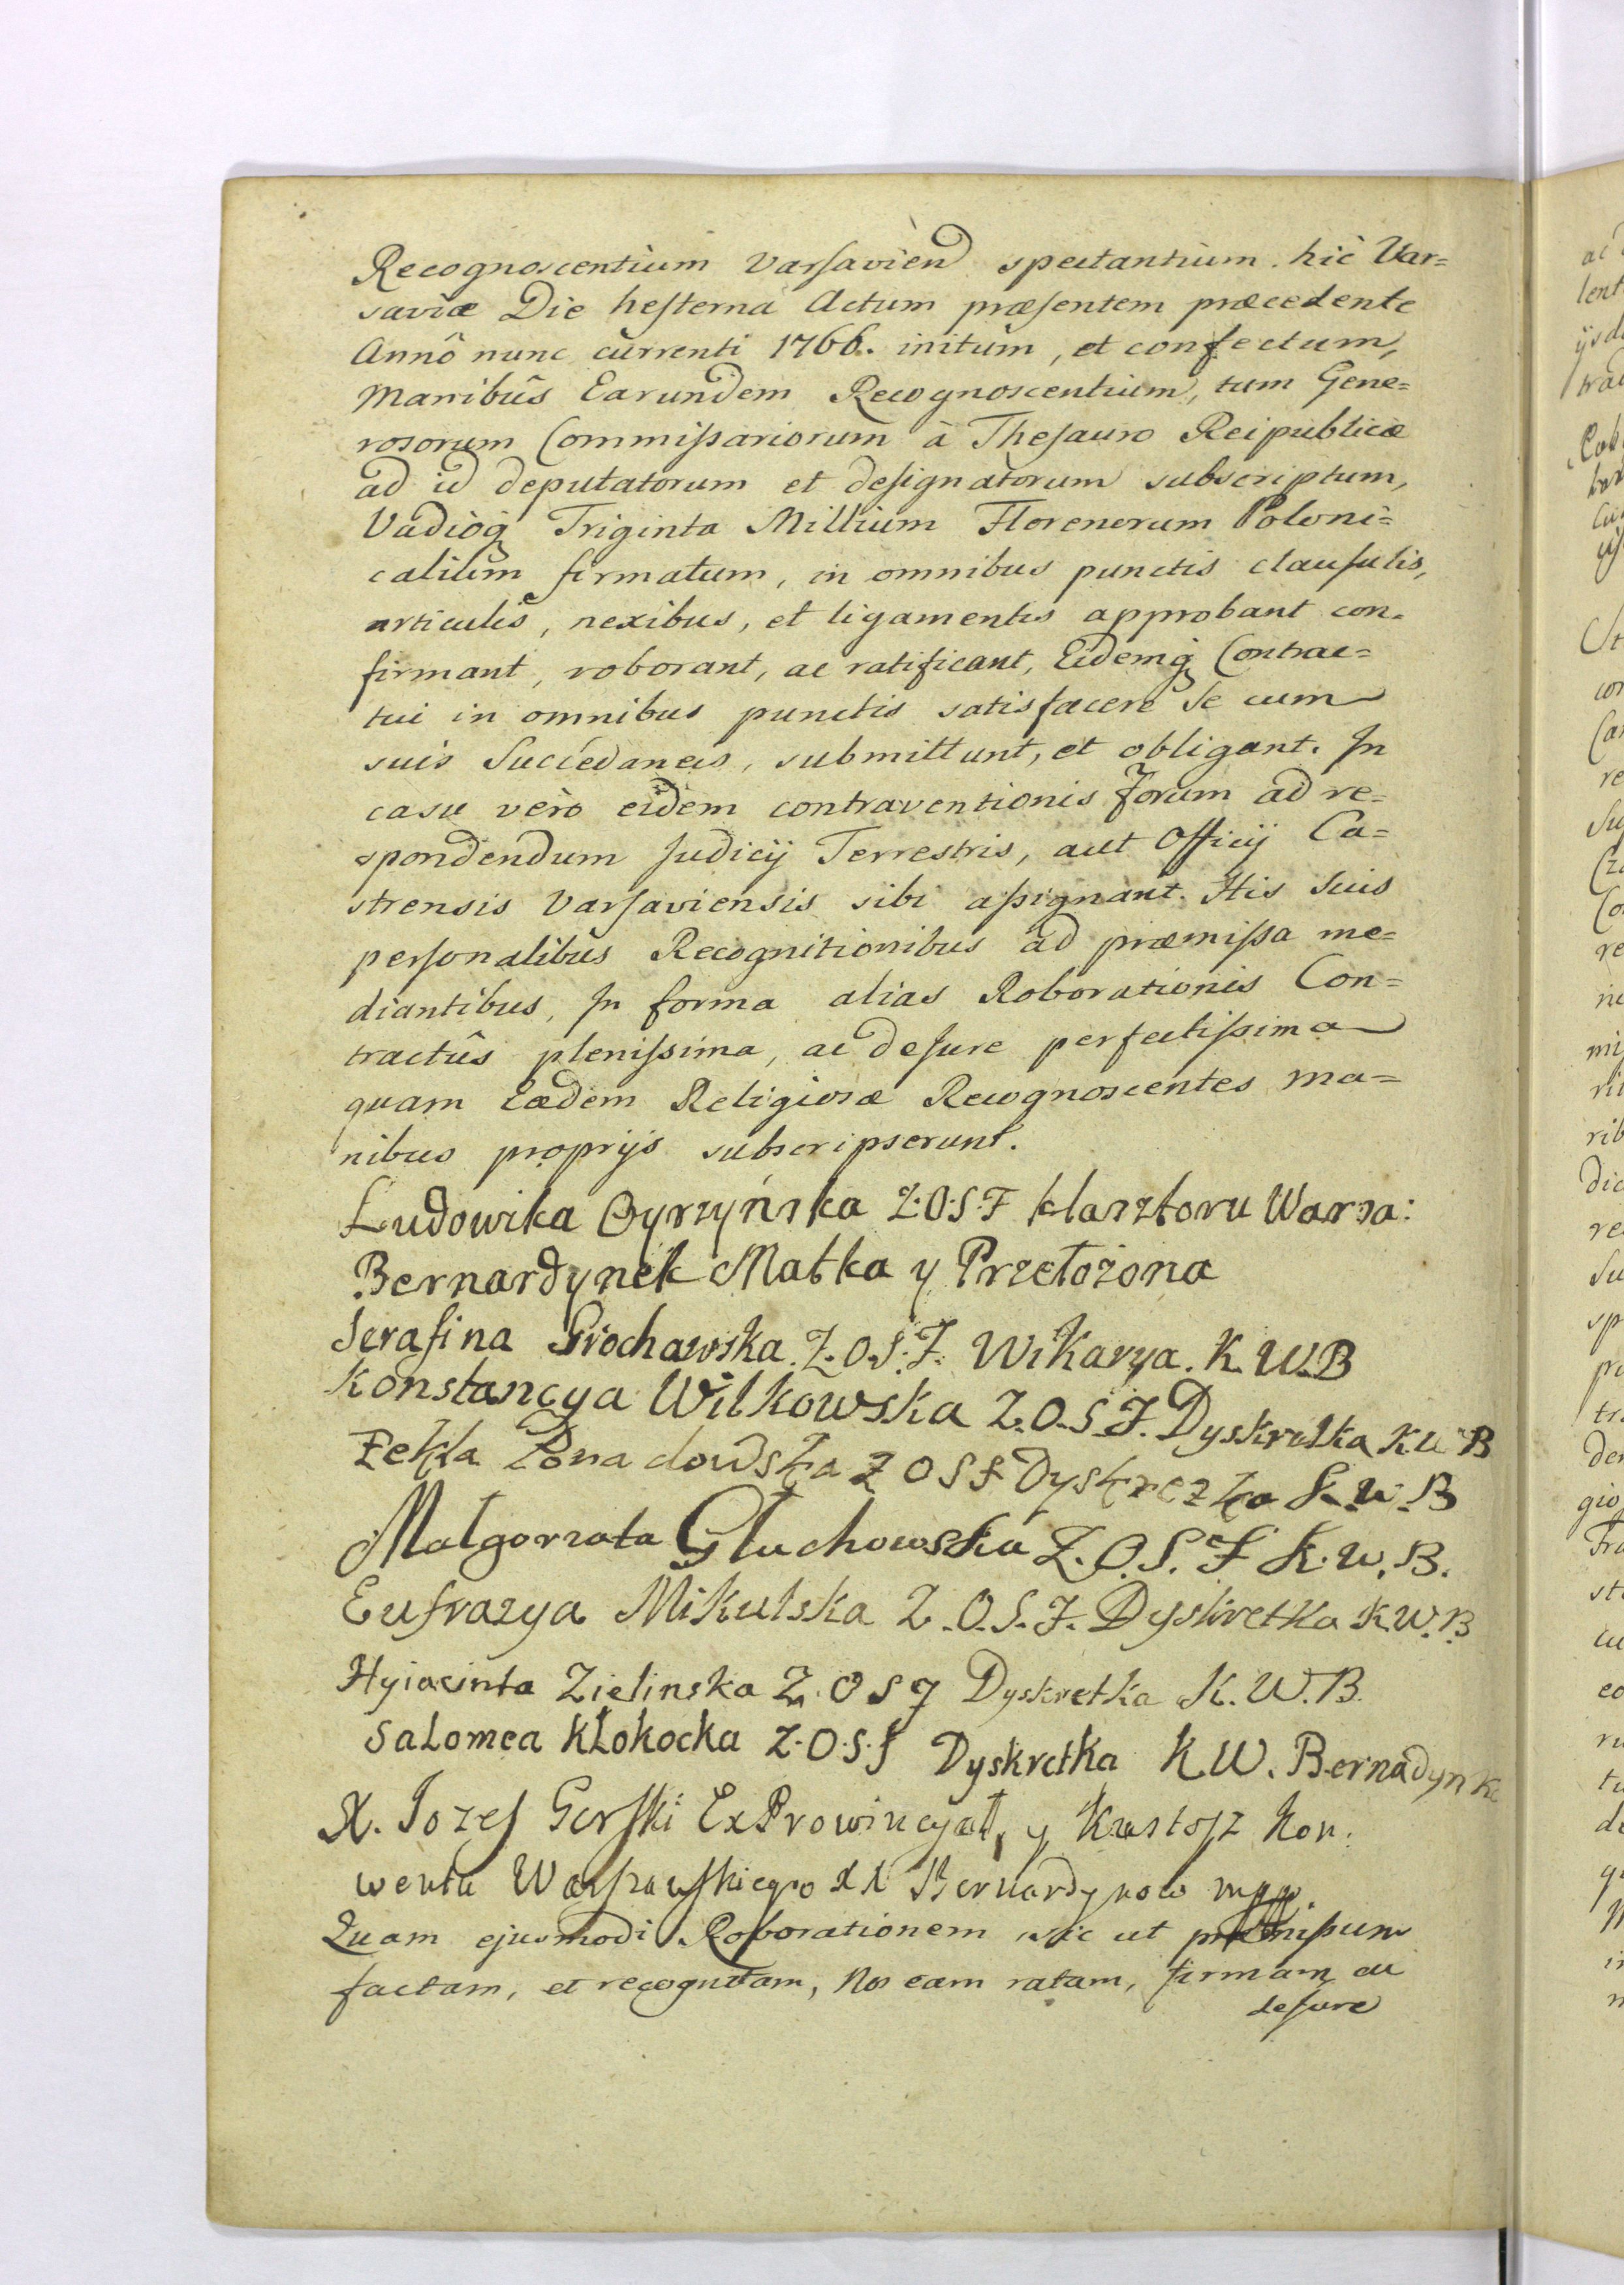 Recognoscentium Varsavien spectantium. hic Var=
saviæ Die hesterna Actum præsentem præcedente
Annô nunc currenti 1766. initum, et confectum,
Manibûs Earundem Recognoscentium, tum Gene=
rosorum Commissariorum à Thesauro Reipublicæ
ad id deputatorum et designatorum subscriptum,
Vadioq Triginta Millium Florenorum Poloni=
calium firmatum, in omnibus punctis clausulis,
articulis, nexibus, et ligamentis approbant con=
firmant, roborant, ac ratificant, Eidemq Contrac=
tui in omnibus punctis satisfacere Se cum
suis Succedaneis, submittunt, et obligant. In
casu vero eidem contraventionis forum ad re=
spondendum Judicij Terrestris, aut Officij Ca=
strensis Varsaviensis sibi assignant. His Suis
personalibus Recognitionibus ad præmissa me=
diantibus, In forma alias Roborationis Con=
tractûs plenissima, ac de Jure perfectissima
quam Eædem Religiosæ Recognoscentes ma=
nibus proprijs subscripserunt.
Ludowika Oyrzyńska Z.O.S.F klasztoru Warsa:
Bernardynek Matka y Przełożona
Serafina Grochawska. Z.O.S.F. Wikarya. K.W.B
Konstancya Wilkowska Z.O.S.F. Dyskretka K W B
Tekla Ponadowska Z O S F Dyskrezka K.W.B
Malgorzata Gluchowska Z.O.S.F K.W.B.
Eufrazya Mikulska Z.O.S.F. Dyskretka K.W.B
Hyiacinta Zielinska Z.O S F Dyskretka K.W.B.
Salomea Kłokocka Z.O.S.F Dyskretka K W. Bernadynk
X. Iozef Gorski ExProwincyał, y Kustosz Kon:
wentu Warszawskiego XX Bernardynow mpp.
Quam ejusmodi Roborationem sic ut præmissum
factam, et recognitam, Nos eam ratam, firmam ac
de Jure